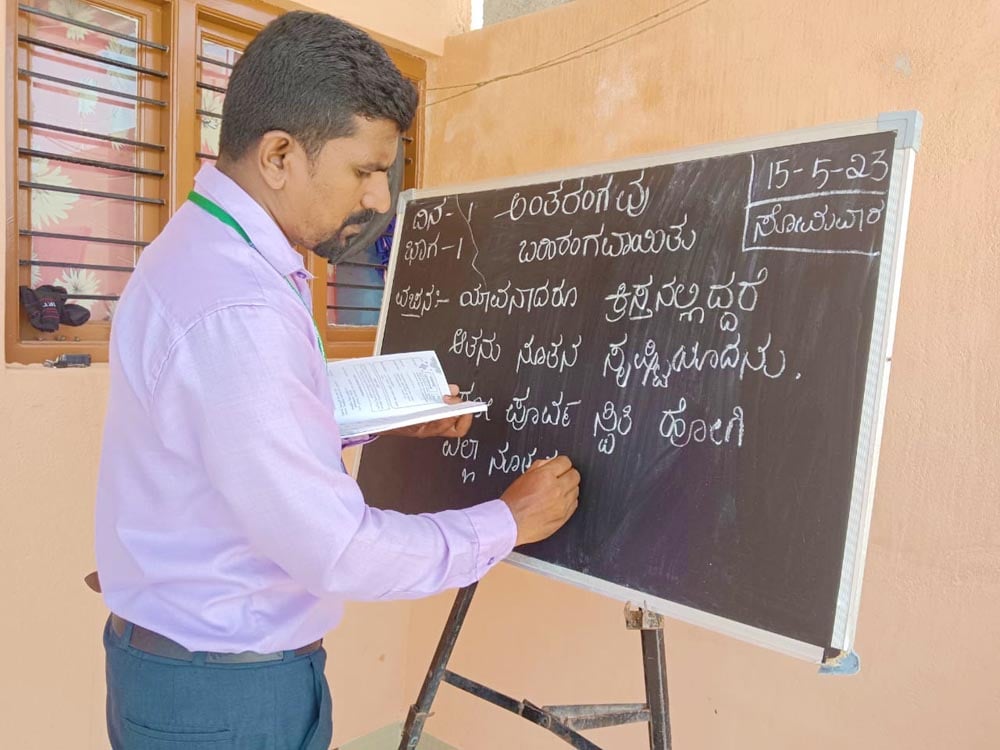 ದಿನ-1 ಅಂತರಂಗವು
ಭಾಗ-1 ಬಹಿರಂಗವಾಯಿತು
15-5-23
ಸೋಮವಾರ
ವಚನ:- ಯಾವನಾದರೂ ಕ್ರಿಸ್ತನಲ್ಲಿದ್ದರೆ
ಆತನು ನೂತನ ಸೃಷ್ಟಿಯಾದನು.
ಪೂರ್ವ ಸ್ಥಿತಿ ಹೋಗಿ
ಎಲ್ಲಾ